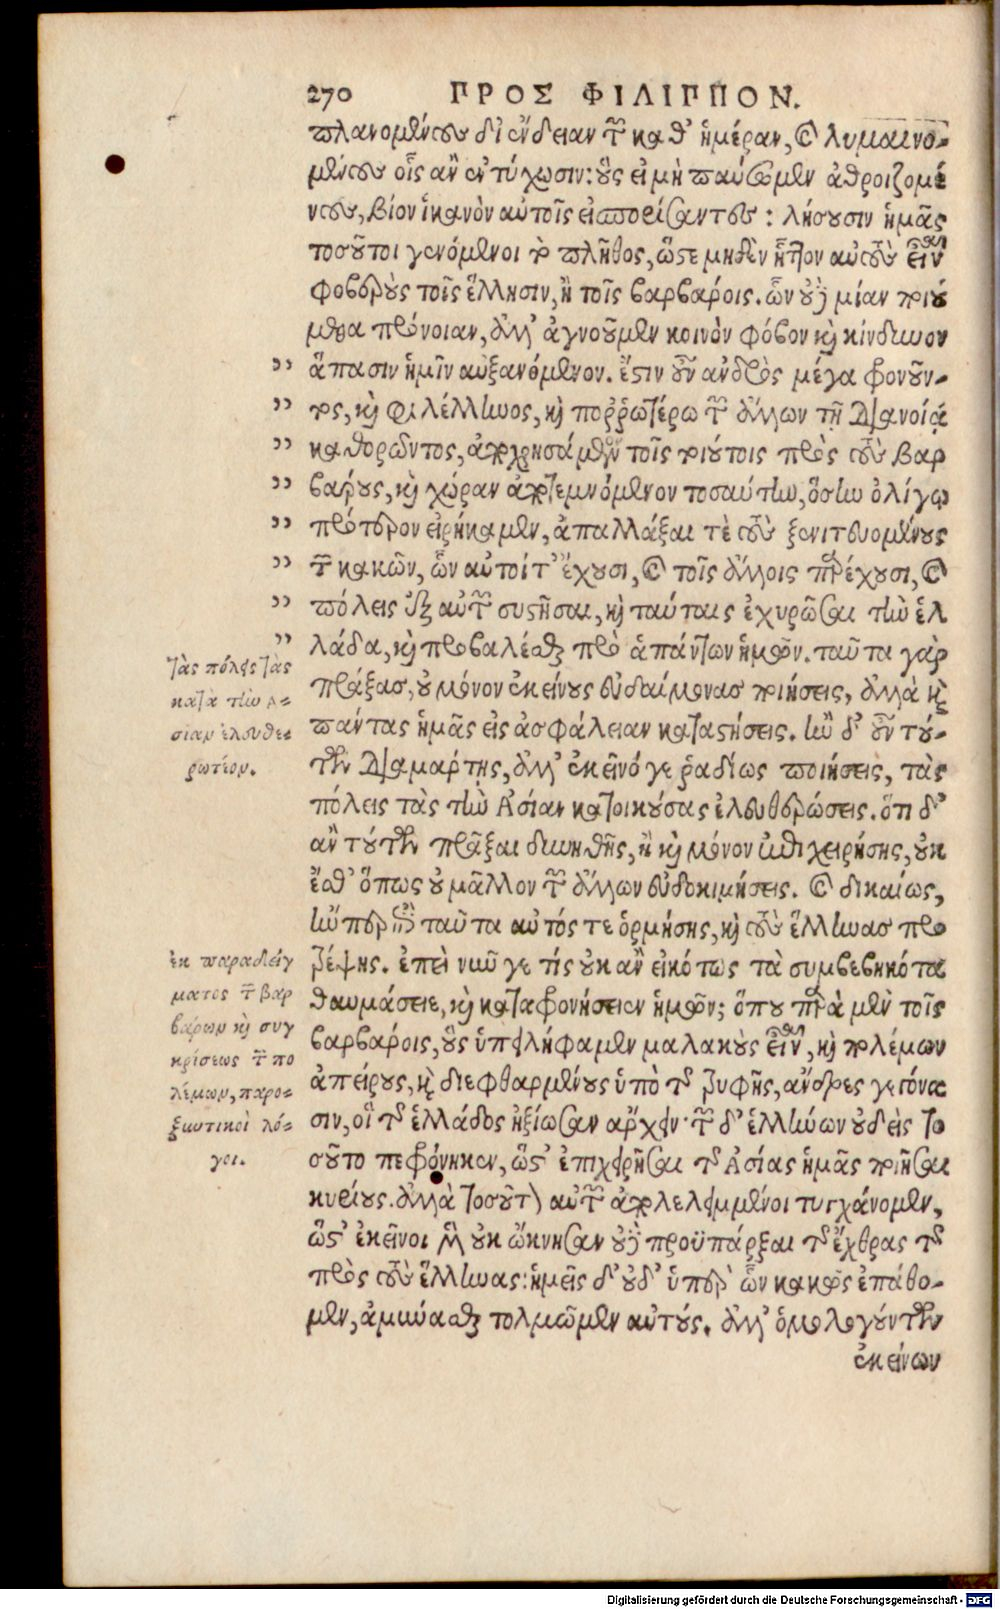 270 ΠΡΟΣ ΦΙΛΙΠΠΟΝ.
πλανομένους δι' ἔνδειαν τῶν καθ' ἡμέραν, καὶ λυμαινο-
μένους οἷς ἂν ἐντύχωσιν: οὓς εἰ μὴ παύσομεν ἀθροιζομέ
νους, βίον ἱκανὸν αὐτοῖς εἰσπορίσαντες: λήσουσιν ἡμᾶς
τοσοῦτοι γενόμενοι τὸ πλῆθος, ὥστε μηδὲν ἧττον αὐτοὺς εἶναι
φοβεροὺς τοῖς ἕλλησιν, ἢ τοῖς βαρβάροις. ὧν οὐδεμίαν ποιού
μεθα πρόνοιαν, ἀλλ' ἀγνοοῦμεν κοινὸν φόβον καὶ κίνδυνον
" ἅπασιν ἡμῖν αὐξανόμενον. ἔστιν οὖν ἀνδρὸς μέγα φρονοῦν-
" τος, καὶ φιλέλληνος, καὶ πορῤῥωτέρω τῶν ἄλλων τῇ διανοίᾳ
" καθορῶντος, ἀποχρησάμενον τοῖς τοιούτοις πρὸς τοὺς βαρ
" βάρους, καὶ χώραν ἀποτεμνόμενον τοσαύτην, ὅσην ὀλίγῳ
" πρότερον εἰρήκαμεν, ἀπαλλάξαι τὲ τοὺς ξενιτευομένους
" τῶν κακῶν, ὧν αὐτοί τ' ἔχουσι, καὶ τοῖς ἄλλοις παρέχουσι, καὶ
" πόλεις ἐξ αὐτῶν συστῆσαι, καὶ ταύταις ἐχυρῶσαι τὴν ἑλ
" λάδα, καὶ προβαλέσθαι πρὸ ἁπάντων ἡμῶν. ταῦτα γὰρ
πράξας, οὐ μόνον ἐκείνους εὐδαίμονας ποιήσεις, ἀλλὰ καὶ
πάντας ἡμᾶς εἰς ἀσφάλειαν καταστήσεις. ἢν δ' οὖν τού-
των διαμάρτῃς, ἀλλ' ἐκεῖνό γε ῥαδίως ποιήσεις, τὰς
πόλεις τὰς τὴν Ἀσίαν κατοικούσας ἐλευθερώσεις. ὅτι δ'
ἂν τούτων πρᾶξαι δυνηθῇς, ἢ καὶ μόνον ἐπιχειρήσῃς, οὐκ
ἔσθ' ὅπως οὐ μᾶλλον τῶν ἄλλων εὐδοκιμήσεις. καὶ δικαίως,
ἤνπερ ἐπὶ ταῦτα αὐτός τε ὁρμήσῃς, καὶ τοὺς ἕλληνας προ
τρέψῃς. ἐπεὶ νῦν γε τίς οὐκ ἂν εἰκότως τὰ συμβεβηκότα
θαυμάσειε, καὶ καταφρονήσειεν ἡμῶν; ὅπου παρὰ μὲν τοῖς
βαρβάροις, οὓς ὑπειλήφαμεν μαλακοὺς εἶναι, καὶ πολέμων
ἀπείρους, καὶ διεφθαρμένους ὑπὸ τῆς τρυφῆς, ἄνδρες γεγόνα
σιν, οἳ τῆς ἑλλάδος ἠξίωσαν ἄρχειν· τῶν δ' ἑλλήνων οὐδεὶς το
σοῦτο πεφρόνηκεν, ὥστ' ἐπιχειρῆσαι τῆς Ἀσίας ἡμᾶς ποιῆσαι
κυρίους. ἀλλὰ τοσοῦτον αὐτῶν ἀπολελειμμένοι τυγχάνομεν,
ὥστ' ἐκεῖνοι μὲν οὐκ ὤκνησαν οὐδὲ προϋπάρξαι τῆς ἔχθρας τῆς
πρὸς τοὺς ἕλληνας: ἡμεῖς δ' οὐδ' ὑπὲρ ὧν κακῶς ἐπάθο-
μεν, ἀμύνασθαι τολμῶμεν αὐτούς. ἀλλ' ὁμολογούντων
ἐκείνων
τὰς πόλεις τὰς
κατὰ τὴν Ἀ-
σίαν ἐλευθε-
ρωτέον.
ἐκ παραδείγ
ματος τῶν βαρ
βάρων καὶ συγ
κρίσεως τῶν πο
λέμων, παρο-
ξυντικοὶ λό-
γοι.
Digitalisierung gefördert durch die Deutsche Forschungsgemeinschaft - DFG